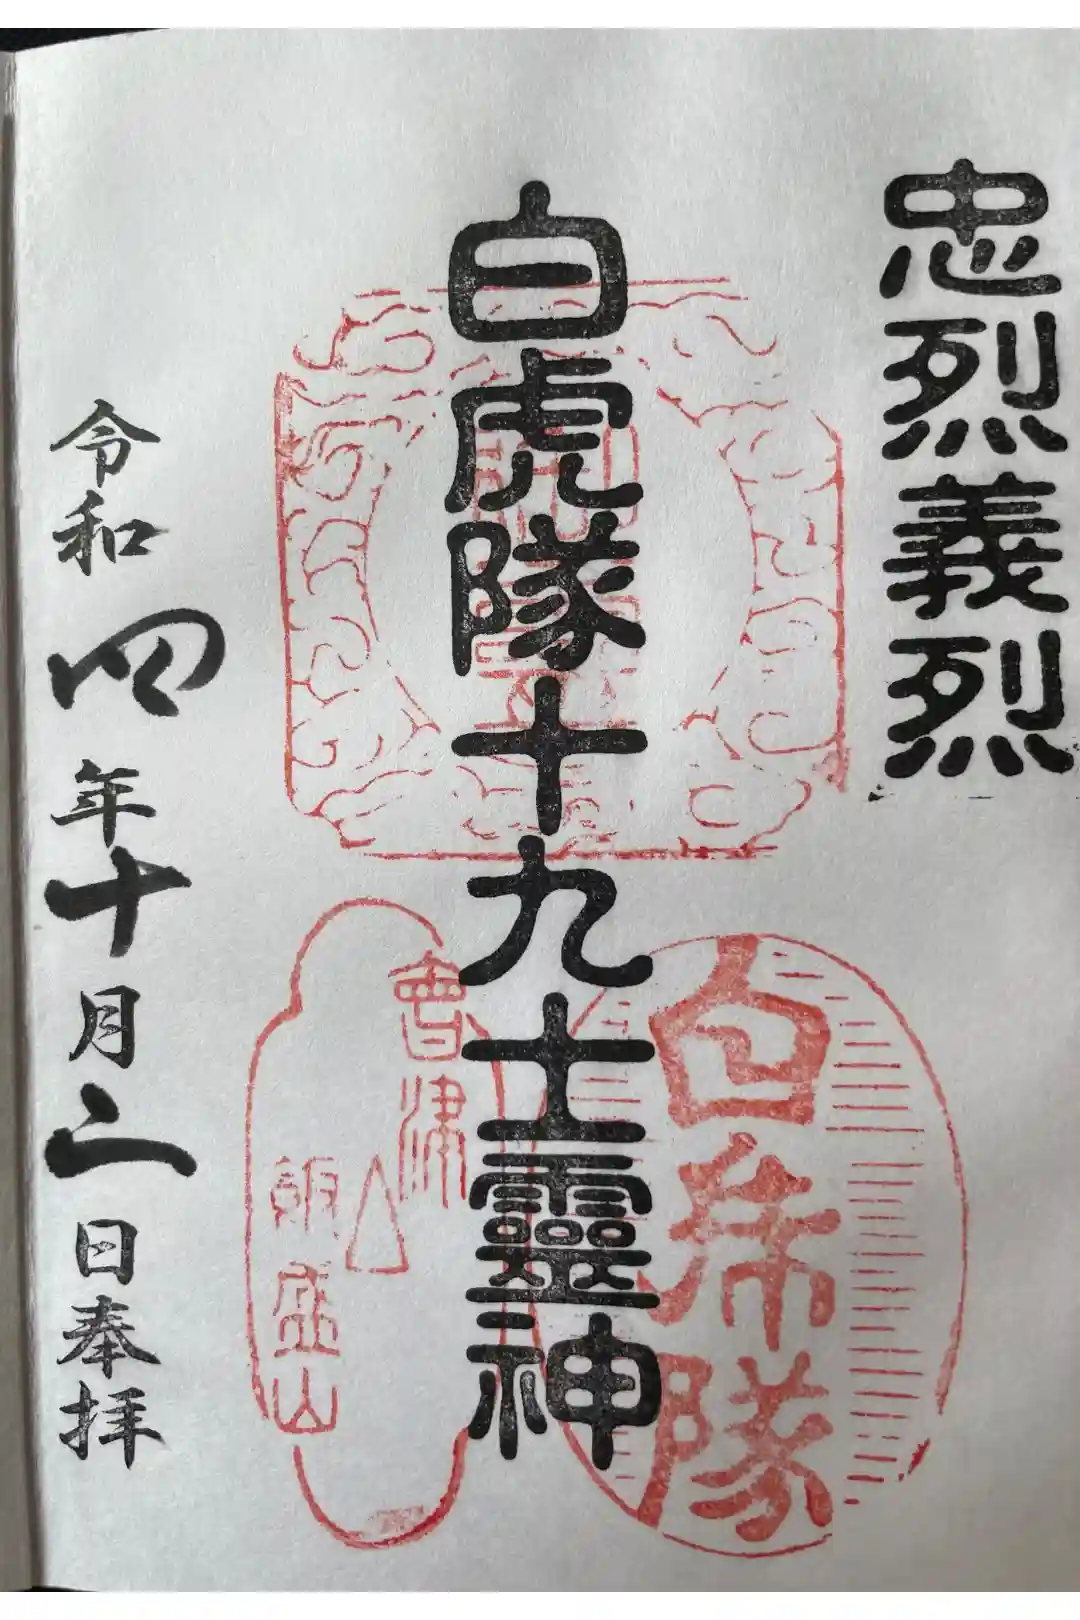 忠烈義烈
白虎隊十九士靈神
白帋隊
會津
飯盛山
令和四年十月二日奉拝